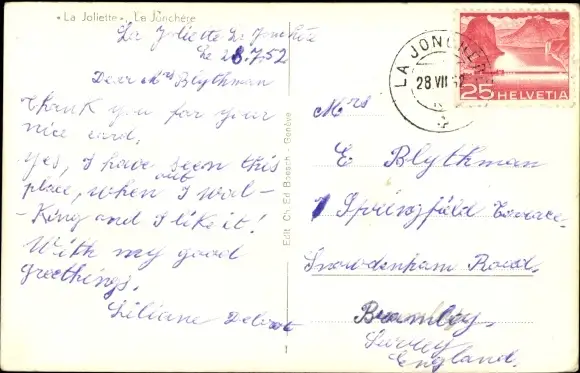 « La Joliette » La Jonchère
La Joliette La Jonchère
Le 28.7.52
Dear Mrs Blythman
Thank you for your
nice card.
Yes, I have seen this
place, when I was out wal-
-king and I like it!
With my good
greethings.
Liliane
Edit. Ch. Ed Boesch - Genève
1
LA JONCHÈRE
28 VII 52
25 HELVETIA
Mrs
E Blythman
1 Springfield Terrace.
Snowdenham Road.
Bramley.
Surrey
England.